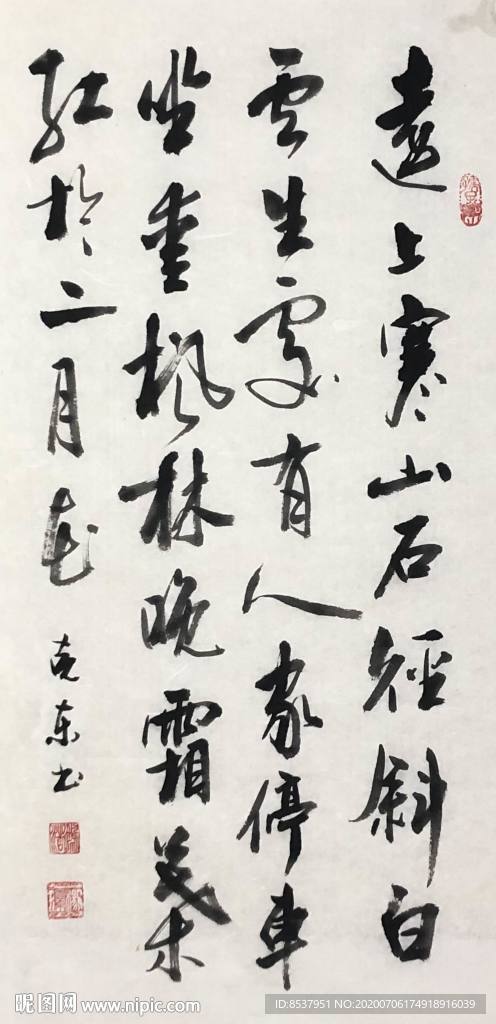 遠上寒山石徑斜白
雲生處有人家停車
坐愛楓林晚霜葉
紅於二月花
克東书
昵图网 www.nipic.com
ID:8537951 NO:20200706174918916039